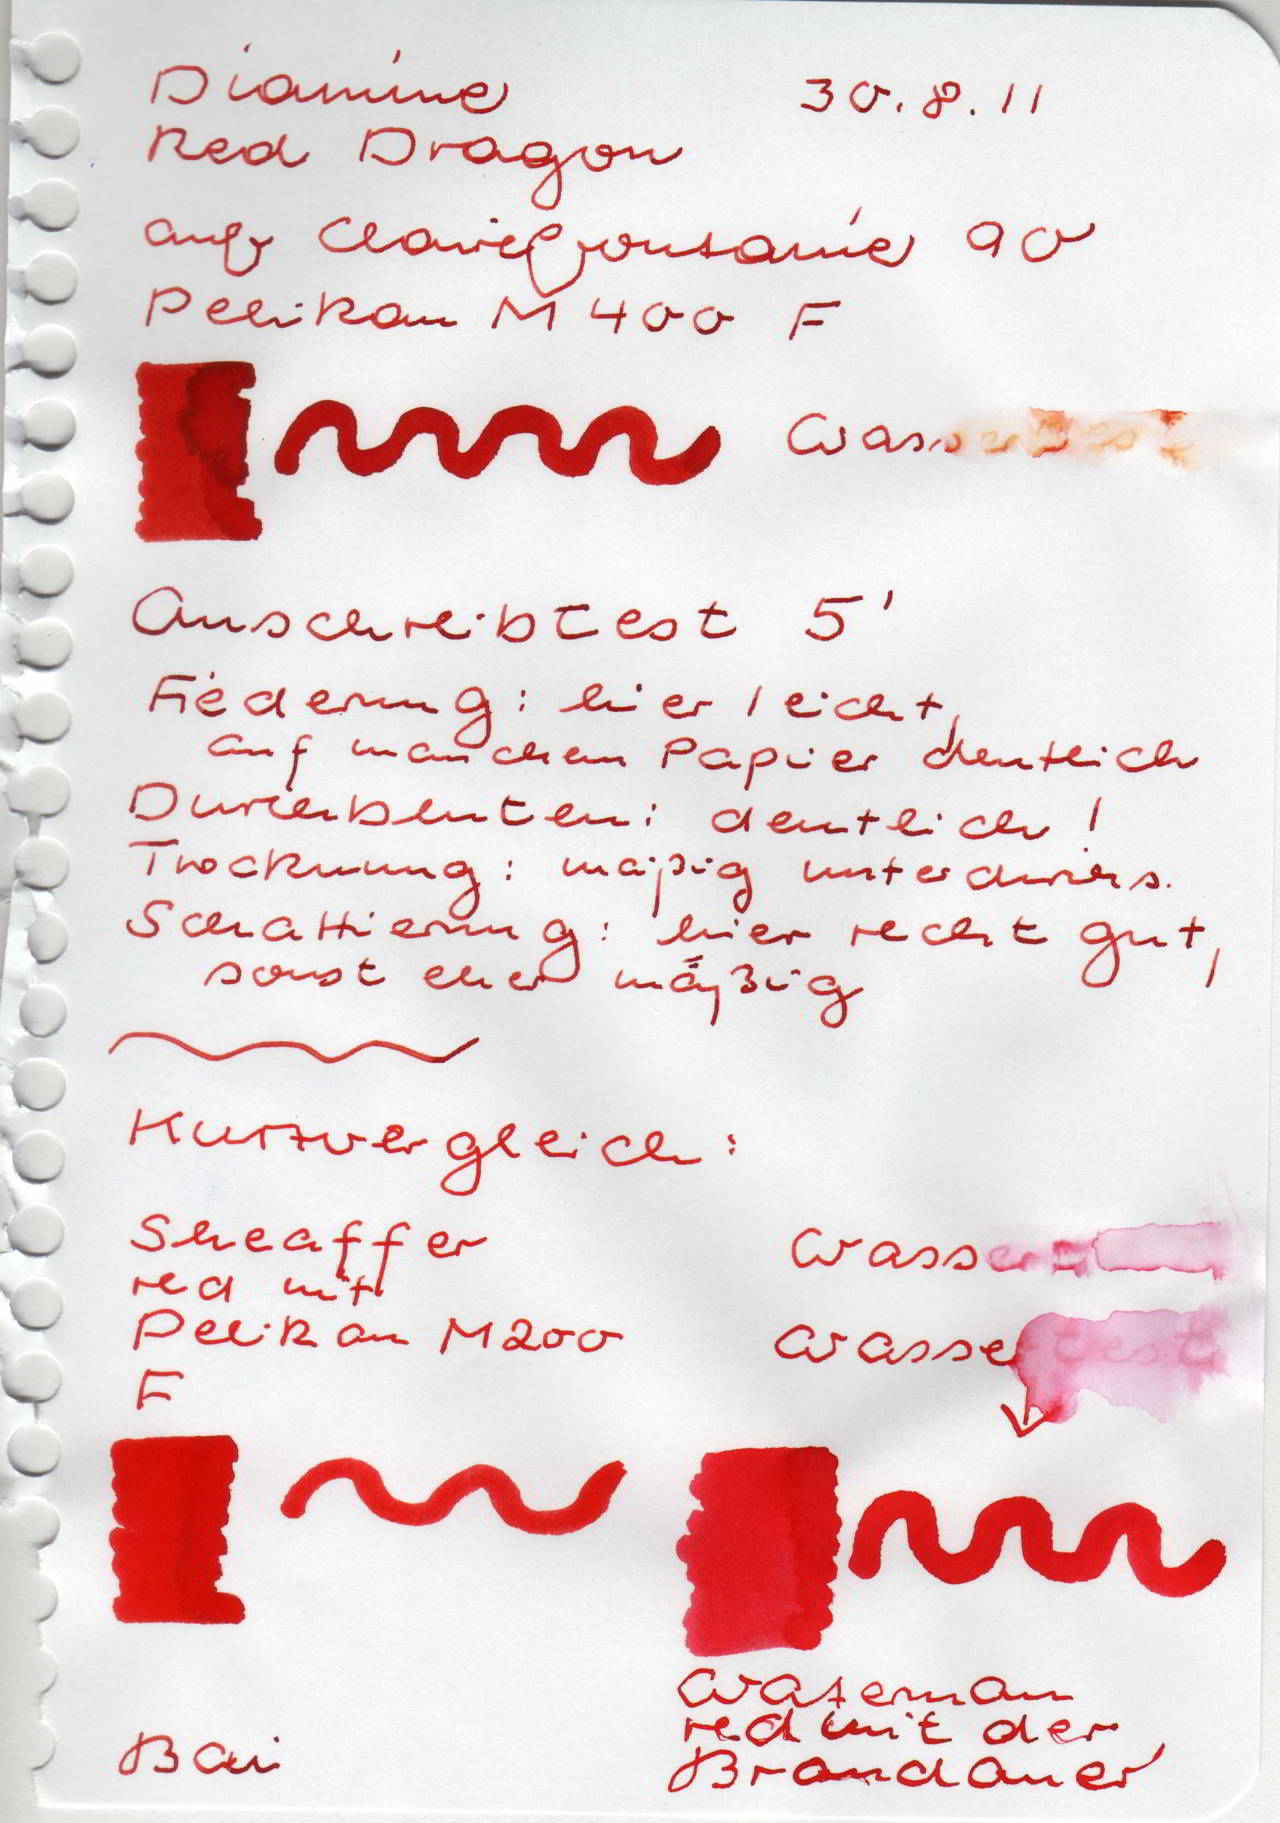 Diamine 30.8.11
Red Dragon
auf Clairefontaine 90
Pelikan M400 F
Wassertest
Anschreibtest 5'
Federung: hier leicht,
auf manchem Papier deutlich
Durchbluten: deutlich!
Trocknung: mäßig unterdurchs.
Schattierung: hier recht gut,
sonst eher mäßig
Kurzvergleich:
Sheaffer
red mit
Pelikan M200
F
Wassert
Wassertest
Waterman
red mit der
Brandauer